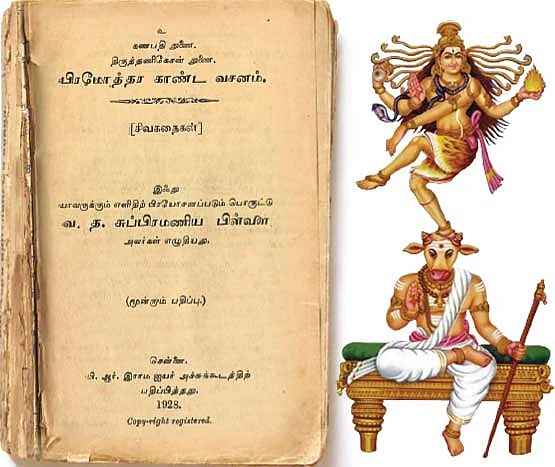 உ
கணபதி துணை.
திருத்தணிகேசன் துணை.
பிரமோத்தர காண்ட வசனம்.
[சிவகதைகள்]
இஃது
யாவருக்கும் எளிதிற் பிரயோசனப்படும் பொருட்டு
வ. த. சுப்பிரமணிய பிள்ளை
அவர்கள் எழுதியது.
(மூன்றாம் பதிப்பு.)
சென்னை.
பி. ஆர். இராம ஐயர் அச்சுக்கூடத்திற்
பதிப்பித்தது.
1928.
Copy-right registered.